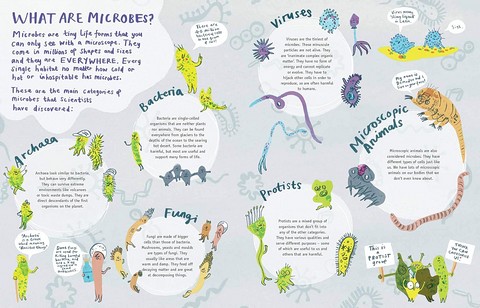 WHAT ARE MICROBES?
Microbes are tiny life forms that you
can only see with a microscope. They
come in millions of shapes and sizes
and they are EVERYWHERE. Every
single habitat no matter how cold or
hot or inhospitable has microbes.
These are the main categories of
microbes that scientists
have discovered:
Bacteria
Bacteria are single-celled
organisms that are neither plants
nor animals. They can be found
everywhere from glaciers to the
depths of the ocean to the searing
hot desert. Some bacteria are
harmful, but most are useful and
support many forms of life.
Archaea
Archaea look similar to bacteria,
but behave very differently.
They can survive extreme
environments like volcanoes
or toxic waste dumps. They are
direct descendants of the first
organisms on the planet.
Fungi
Fungi are made of bigger
cells than those of bacteria.
Mushrooms, yeasts and moulds
are types of fungi. They
usually like areas that are
warm and damp. They feed off
decaying matter and are great
at decomposing things.
Viruses
Viruses are the tiniest of
microbes. These minuscule
particles are not alive. They
are inanimate complex organic
matter. They have no form of
energy and cannot replicate
or evolve. They have to
hijack other cells to order to
reproduce, so are often harmful
to humans.
Virus means
'slimy liquid'
in Latin.
Microscopic
Animals
Microscopic animals are also
considered microbes. They have
different types of cells just like
us. We have lots of microscopic
animals on our bodies that we
don't even know about.
Protists
Protists are a mixed group of
organisms that don't fit into
any of the other categories.
They have various qualities and
serve different purposes – some
of which are useful to us and
others that are harmful.
This is
a
PROTIST
group!